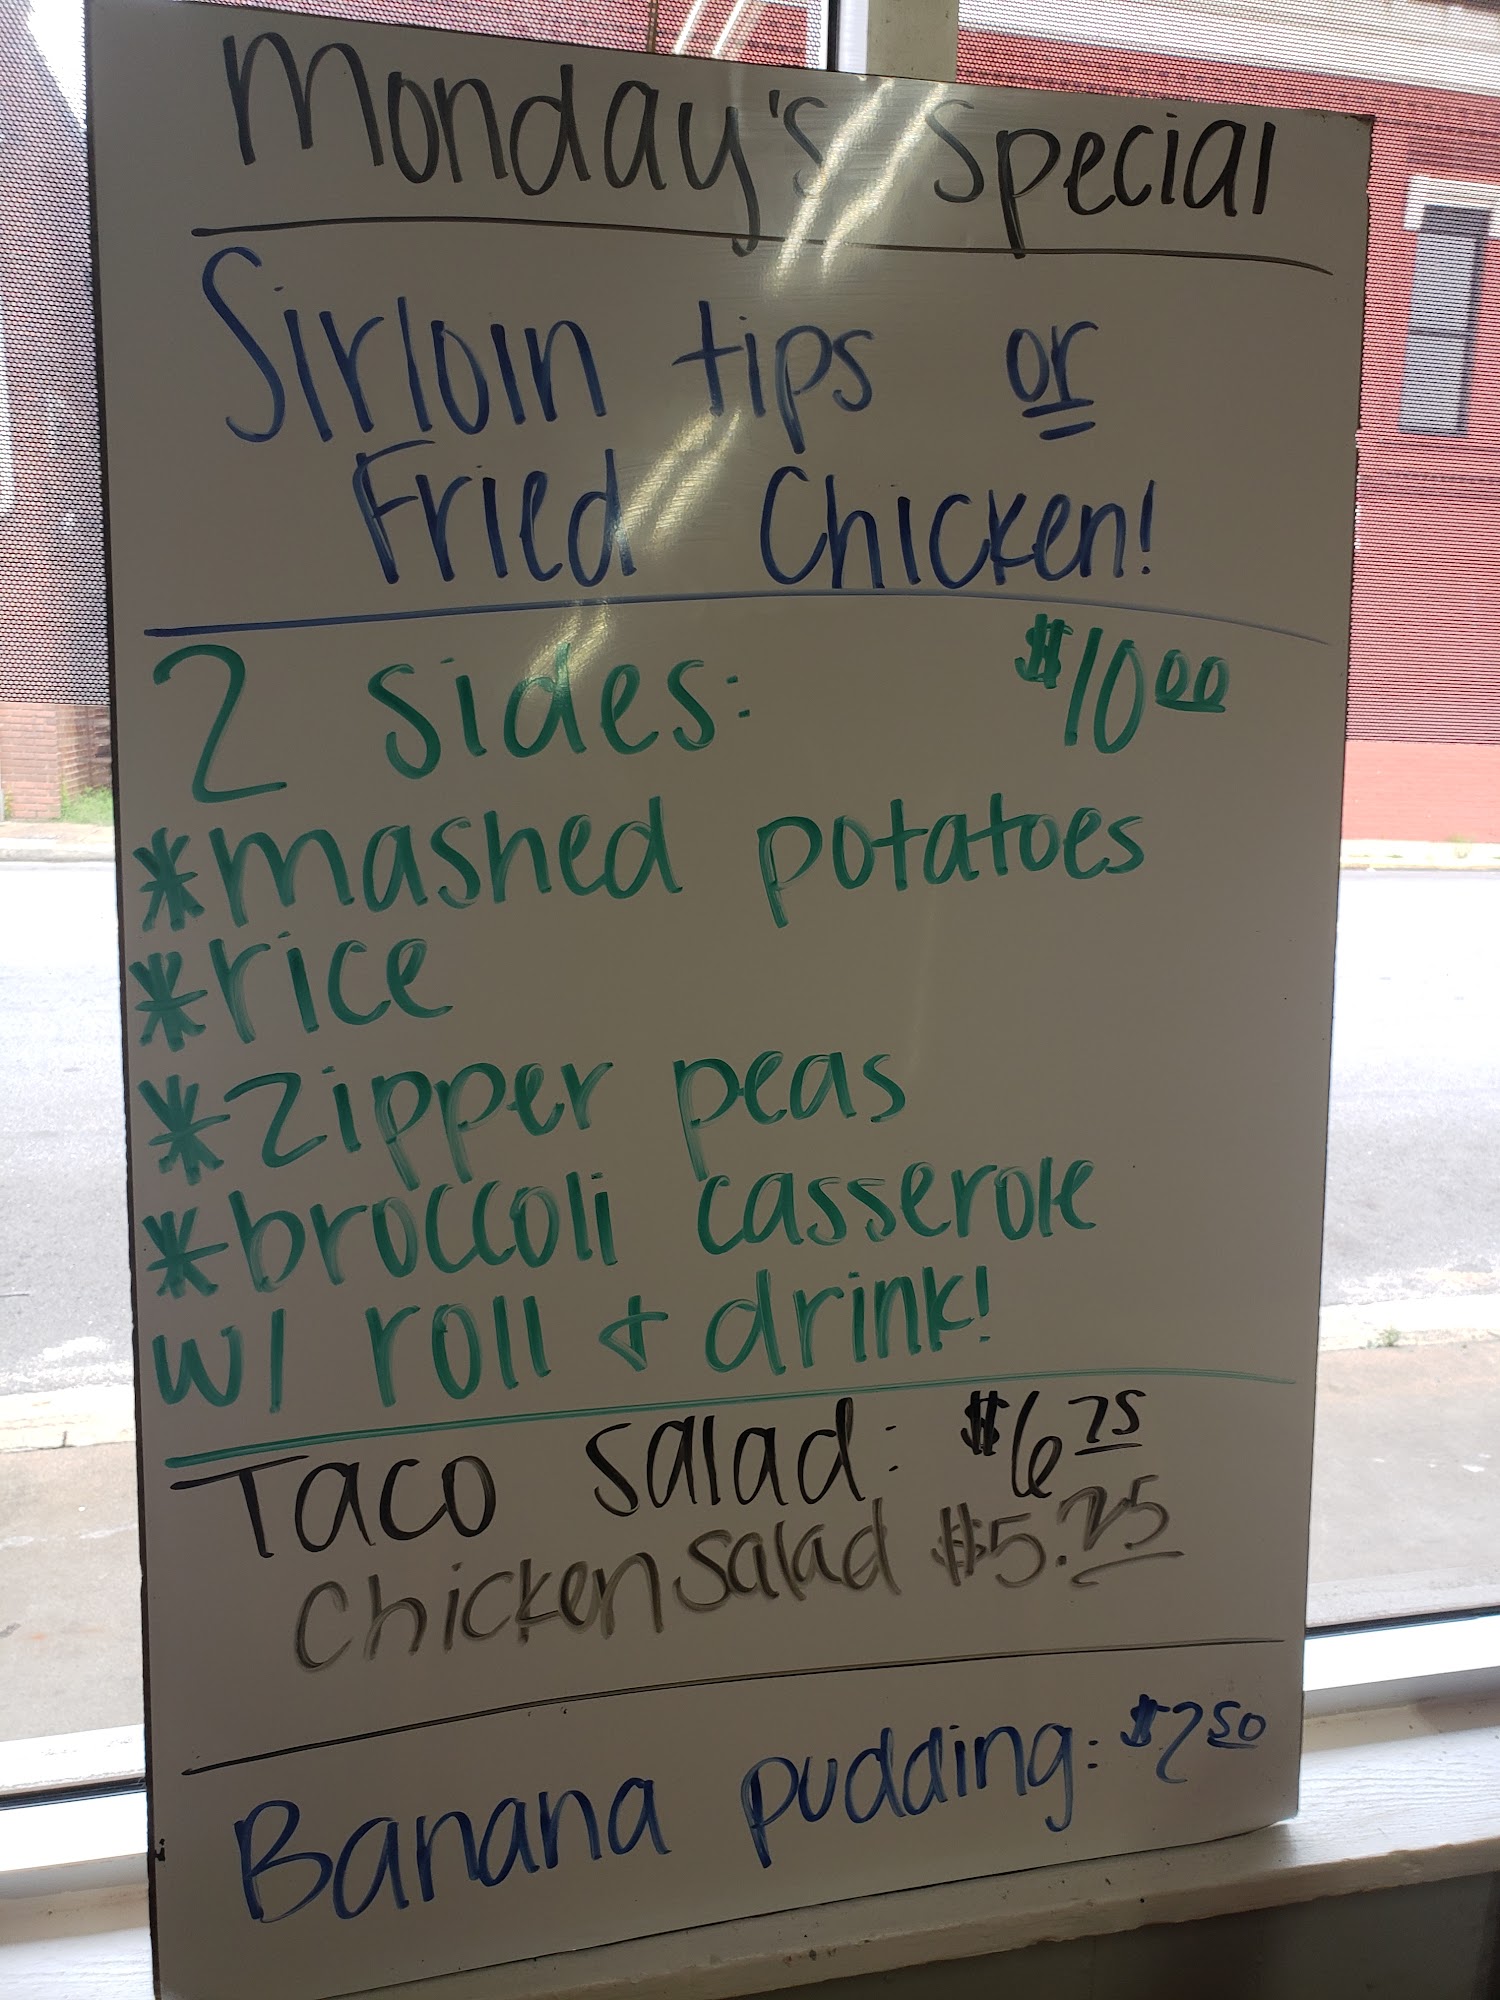 Monday's Special
Sirloin tips or
Fried Chicken!
2 sides: $10.00
*mashed potatoes
*rice
*zipper peas
*broccoli casserole
w/ roll & drink!
Taco salad: $6.75
Chicken Salad $5.75
Banana pudding: $2.50